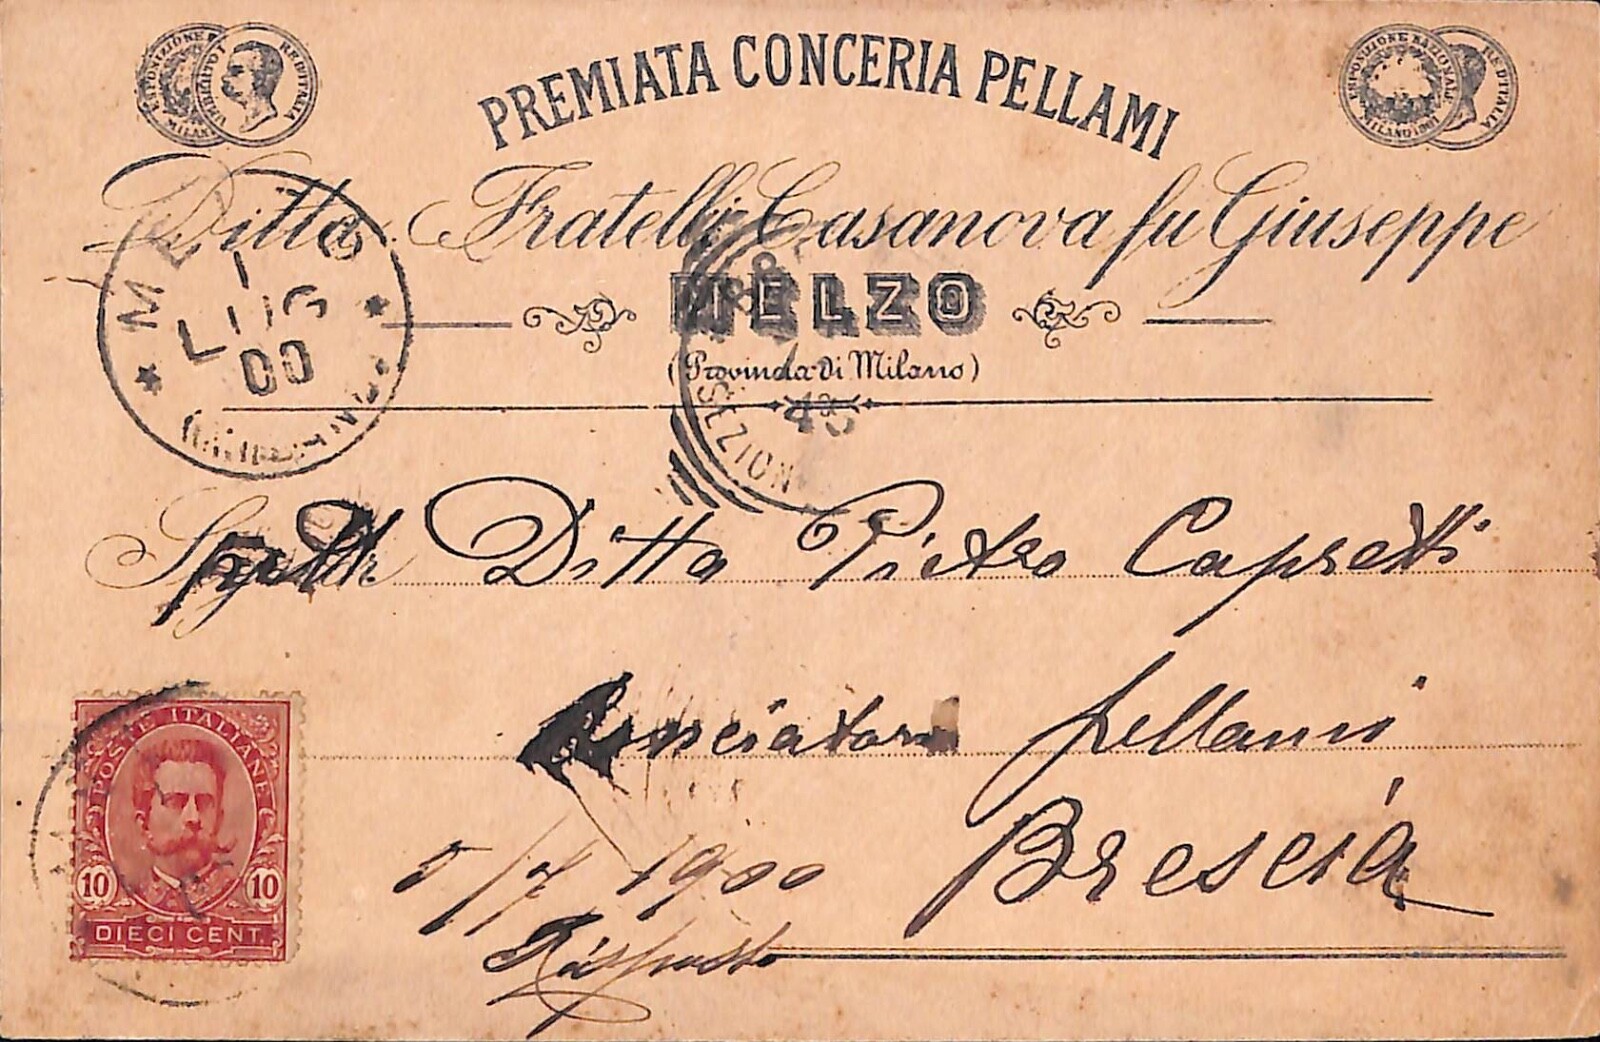 ESPOSIZIONE
MILANO
UMBERTO I RE D'ITALIA
ESPOSIZIONE NAZIONALE
MILANO 1881
RE D'ITALIA
PREMIATA CONCERIA PELLAMI
Ditta Fratelli Casanova fu Giuseppe
MELZO
(Provincia di Milano)
MELZO
1
LUG
00
(MILANO)
SEZION
Spett. Ditta Pietro Capretti
pellami
Brescia
POSTE ITALIANE
10 10
DIECI CENT.
1/7 1900
Risposto